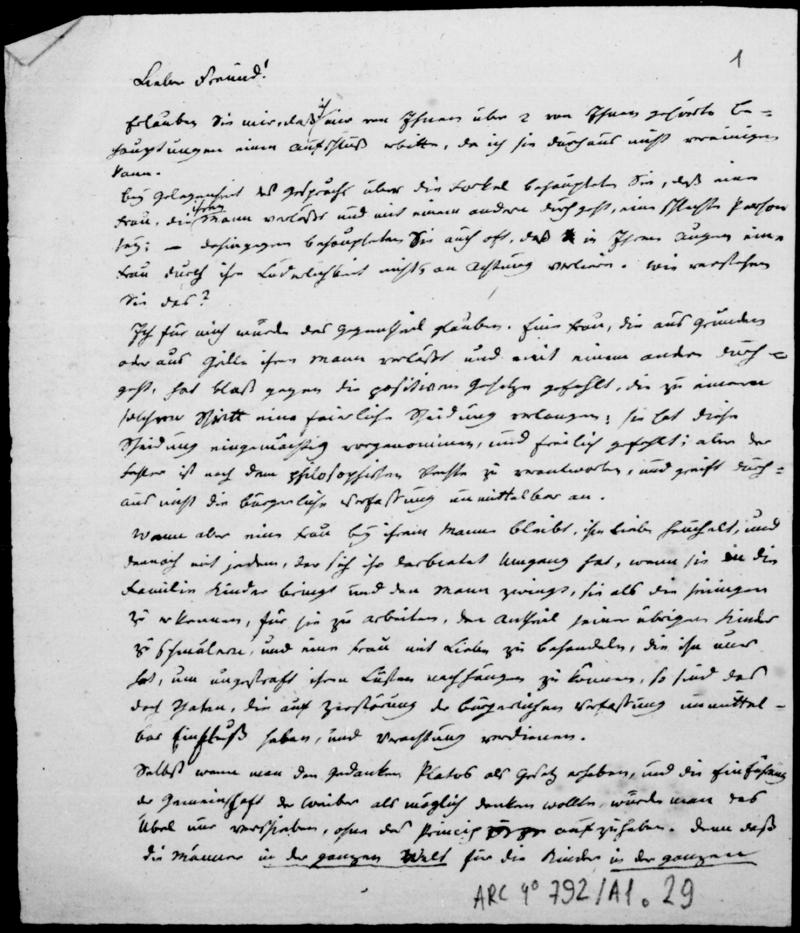 1
Lieber Freund!
Erlauben Sie mir, daß ich mir von Ihnen über 2 von Ihnen gehörte Be=
hauptungen einen Aufschluß erbitte, da ich sie durchaus nicht vereinigen
kann.
Bey Gelegenheit des Gesprächs über die Forkel behaupteten Sie, daß eine
Frau, die ihren Mann verläßt und mit einem andern durchgeht, eine schlechte Person
sey; – dahingegen behaupteten Sie auch oft, daß in Ihren Augen eine
Frau durch ihre Lüderlichkeit nichts an Achtung verliere. Wie verstehen
Sie das?
Ich für mich würde das Gegentheil glauben. Eine Frau, die aus Gründen
oder aus Grille ihren Mann verläßt und mit einem andern durch=
geht, hat bloß gegen die positiven Gesetze gefehlt, die zu einem
solchen Schritt eine feierliche Scheidung verlangen; sie hat diese
Scheidung eingenmächtig vorgenommen, und freilich gefehlt; aber der
Fehler ist nach dem philosophischen Rechte zu verantworten, und greift durch=
aus nicht die bürgerliche Verfassung unmittelbar an.
Wenn aber eine Frau bey ihrem Manne bleibt, ihm Liebe heuchelt, und
dennoch mit jedem, der sich ihr darbietet Umgang hat, wenn sie in die
Familie Kinder bringt und den Mann zwingt, sie als die seinigen
zu erkennen, für sie zu arbeiten, den Antheil seiner übrigen Kinder
zu schmälern, und eine Frau mit Liebe zu behandeln, die ihn nur
hat, um ungestraft ihren Lüsten nachhängen zu können, so sind das
doch Thaten, die auf Zerstörung der bürgerlichen Verfassung unmittel=
bar Einfluß haben, und Verachtung verdienen.
Selbst wenn man den Gedanken Platos als Gesetz erheben, und die Einführung
der Gemeinschaft der Weiber als möglich denken wollte, würde man das
Übel nur verschieben, ohne das Princip aufzuheben. Denn daß
die Männer in der ganzen Welt für die Kinder in der ganzen
ARC 4° 792/A1.29